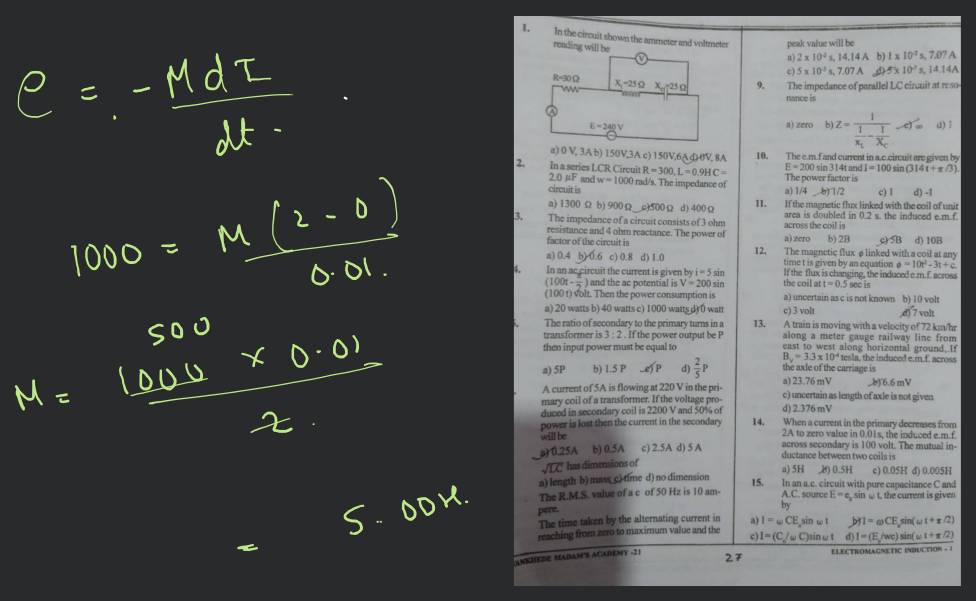 e = - M dI
dt .
1000 = M (2 - 0)
0.01.
500
M = 1000 x 0.01
2 .
= 5.00H.
1. In the circuit shown the ammeter and voltmeter
reading will be
V
R=30Ω X_L=25Ω X_C=25Ω
A
E=240 V
a) 0 V, 3A b) 150V,3A c) 150V,6A d) 0V, 8A
2. In a series LCR Circuit R = 300, L = 0.9H C=
2.0 μF and w = 1000 rad/s. The impedance of
circuit is
a) 1300 Ω b) 900 Ω c) 500 Ω d) 400 Ω
3. The impedance of a circuit consists of 3 ohm
resistance and 4 ohm reactance. The power of
factor of the circuit is
a) 0.4 b) 0.6 c) 0.8 d) 1.0
4. In an ac circuit the current is given by i = 5 sin
(100t - π/2) and the ac potential is V = 200 sin
(100 t) volt. Then the power consumption is
a) 20 watts b) 40 watts c) 1000 watts d) 0 watt
The ratio of secondary to the primary turns in a
transformer is 3 : 2. If the power output be P
then input power must be equal to
a) 5P b) 1.5 P c) P d) 2/5 P
A current of 5A is flowing at 220 V in the pri-
mary coil of a transformer. If the voltage pro-
duced in secondary coil is 2200 V and 50% of
power is lost then the current in the secondary
will be
a) 0.25A b) 0.5A c) 2.5A d) 5 A
√LC has dimensions of
a) length b) mass c) time d) no dimension
The R.M.S. value of a c of 50 Hz is 10 am-
pere.
The time taken by the alternating current in
reaching from zero to maximum value and the
ANKHEDE MADAM'S ACADEMY -21
peak value will be
a) 2 x 10⁻² s, 14.14 A b) 1 x 10⁻² s, 7.07 A
c) 5 x 10⁻³ s, 7.07 A d) 5 x 10⁻³ s, 14.14A
9. The impedance of parallel LC circuit at reso-
nance is
a) zero b) Z = 1 / (1/X_L - 1/X_C) c) ∞ d) 1
10. The e.m.f and current in a.c. circuit are given by
E = 200 sin 314t and I = 100 sin (314 t + π /3).
The power factor is
a) 1/4 b) 1/2 c) 1 d) -1
11. If the magnetic flux linked with the coil of unit
area is doubled in 0.2 s. the induced e.m.f.
across the coil is
a) zero b) 2B c) 5B d) 10B
12. The magnetic flux φ linked with a coil at any
time t is given by an equation φ = 10t² - 3t + c.
If the flux is changing, the induced e.m.f. across
the coil at t = 0.5 sec is
a) uncertain as c is not known b) 10 volt
c) 3 volt d) 7 volt
13. A train is moving with a velocity of 72 km/hr
along a meter gauge railway line from
east to west along horizontal ground,. If
B_v = 3.3 x 10⁻⁴ tesla, the induced e.m.f. across
the axle of the carriage is
a) 23.76 mV b) 6.6 mV
c) uncertain as length of axle is not given
d) 2.376 mV
14. When a current in the primary decreases from
2A to zero value in 0.01s, the induced e.m.f.
across secondary is 100 volt. The mutual in-
ductance between two coils is
a) 5H b) 0.5H c) 0.05H d) 0.005H
15. In an a.c. circuit with pure capacitance C and
A.C. source E = e₀ sin ω t, the current is given
by
a) I = ω CE₀ sin ω t b) I = ω CE₀ sin( ω t + π /2)
c) I = (C₀/ω C)sin ω t d) I = (E₀/wc) sin( ω t + π /2)
27 ELECTROMAGNETIC INDUCTION - I